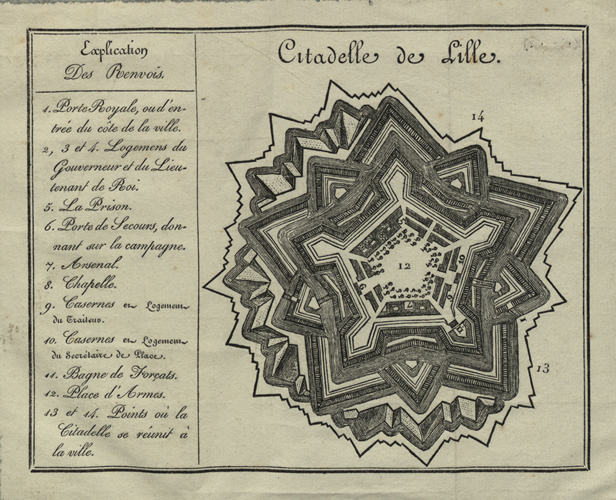 Explication
Des Renvois.
1. Porte Royale, ou d'en-
trée du côte de la ville.
2, 3 et 4. Logemens du
Gouverneur et du Lieu-
tenant de Roi.
5. La Prison.
6. Porte de Secours, don-
nant sur la campagne.
7. Arsenal.
8. Chapelle.
9. Casernes et Logement
du Traiteur.
10. Casernes et Logement
du Secrétaire de Place.
11. Bagne de Forçats.
12. Place d'Armes.
13 et 14. Points où la
Citadelle se réunit à
la ville.
Citadelle de Lille.
14
12
13